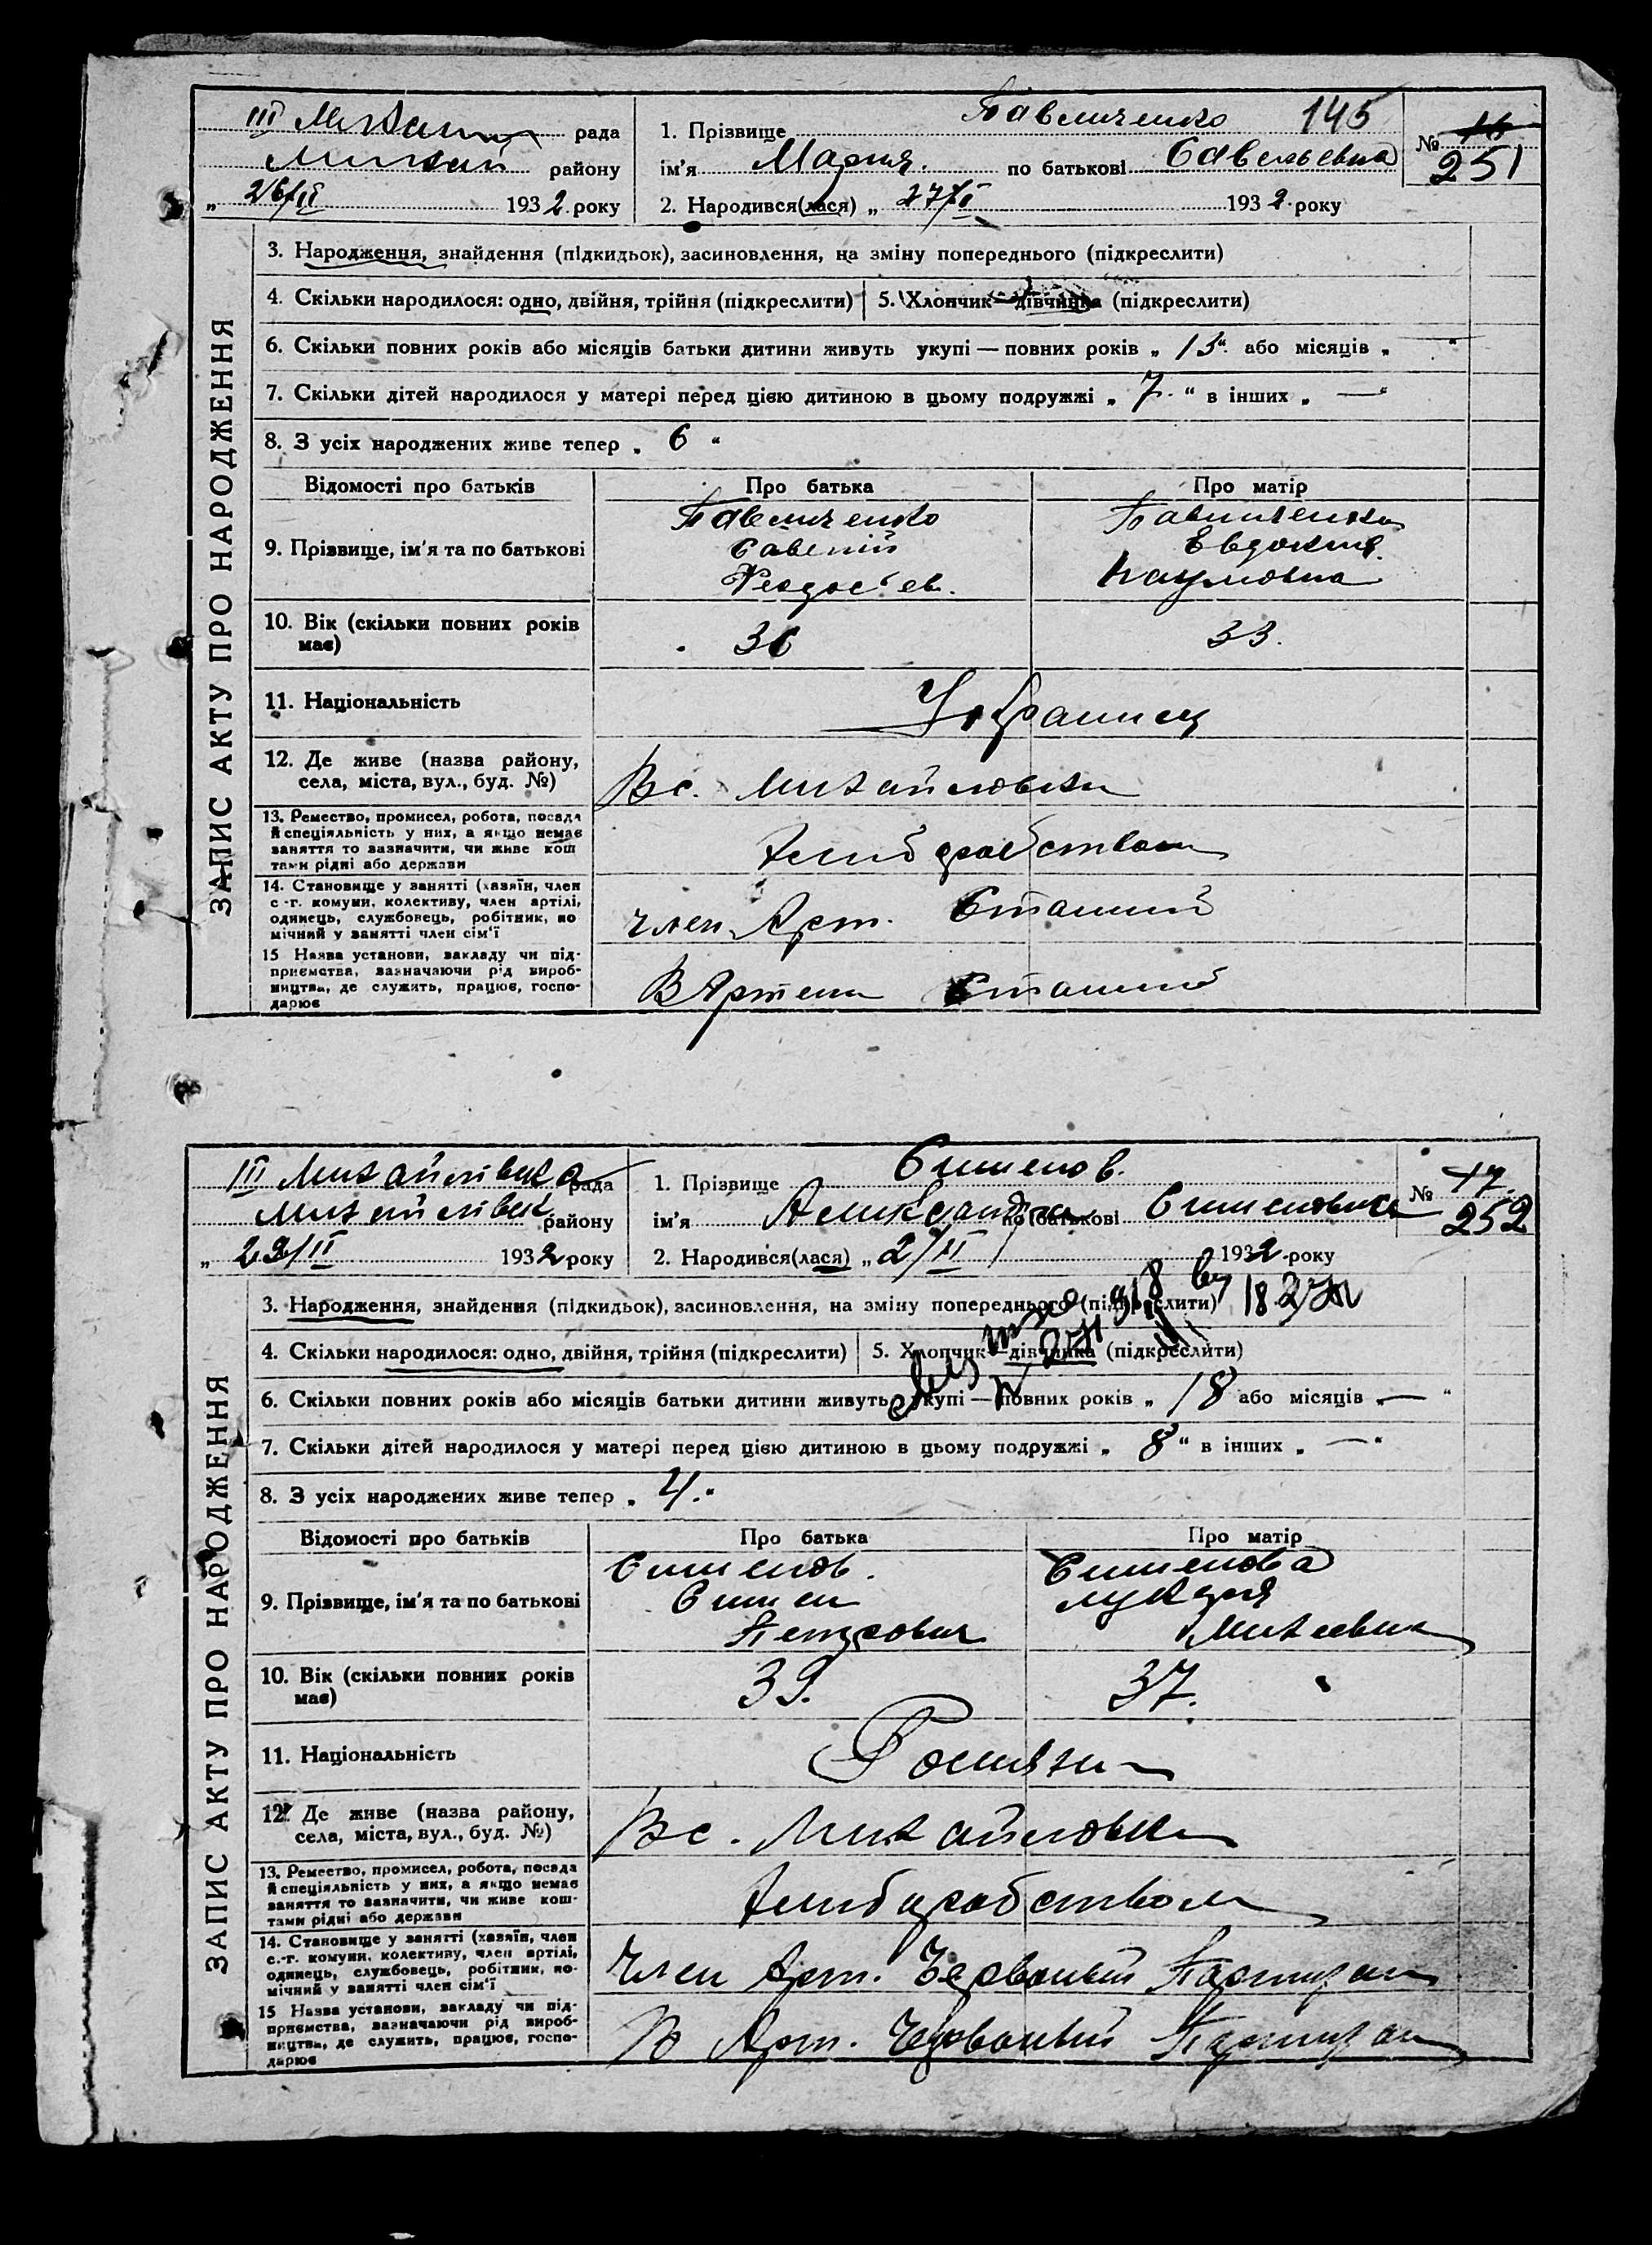 145
III рада
району
„ 26/II 1932 року
1. Прізвище Павличенко
ім'я Мария. по батькові Савельевна
2. Народився(лася) „ 27/I 1932 року
№ 16
251
ЗАПИС АКТУ ПРО НАРОДЖЕННЯ
3. Народження, знайдення (підкидьок), засиновлення, на зміну попереднього (підкреслити)
4. Скільки народилося: одно, двійня, трійня (підкреслити) 5. Хлопчик—дівчинка (підкреслити)
6. Скільки повних років або місяців батьки дитини живуть укупі — повних років „ 13 “ або місяців „ “
7. Скільки дітей народилося у матері перед цією дитиною в цьому подружжі „ 7. “ в інших „ — “
8. З усіх народжених живе тепер „ 6 “
Відомості про батьків Про батька Про матір
9. Прізвище, ім'я та по батькові
Павличенко
Савелий
Феодосьев.
Евдокия.
Наумовна
10. Вік (скільки повних років має) 36 33.
11. Національність Украинец
12. Де живе (назва району, села, міста, вул., буд. №)
В с. Михайловки
13. Ремество, промисел, робота, посада й спеціяльність у них, а якщо немає заняття то зазначити, чи живе коштами рідні або держави
Хлибдробством
14. Становище у занятті (хазяїн, член с.-г. комуни, колективу, член артілі, одинець, службовець, робітник, помічний у занятті член сім'ї
член Арт.
15 Назва установи, закладу чи підприємства, зазначаючи рід виробництва, де служить, працює, господарює
В Артели
III Михайлівка рада
Михайлівск. району
„ 22/II 1932 року
1. Прізвище Сименов.
ім'я Александра по батькові Сименовна
2. Народився(лася) „ 2/II 1932 року
№ 17.
252
ЗАПИС АКТУ ПРО НАРОДЖЕННЯ
3. Народження, знайдення (підкидьок), засиновлення, на зміну попереднього (підкреслити)
4. Скільки народилося: одно, двійня, трійня (підкреслити) 5. Хлопчик—дівчинка (підкреслити)
6. Скільки повних років або місяців батьки дитини живуть укупі — повних років „ 18 “ або місяців „ — “
7. Скільки дітей народилося у матері перед цією дитиною в цьому подружжі „ 8 “ в інших „ — “
8. З усіх народжених живе тепер „ 4. “
Відомості про батьків Про батька Про матір
9. Прізвище, ім'я та по батькові
Сименов.
Симен
Петрович
Сименова
Михеевна
10. Вік (скільки повних років має) 39. 37.
11. Національність
12. Де живе (назва району, села, міста, вул., буд. №)
В с. Михайловки
13. Ремество, промисел, робота, посада й спеціяльність у них, а якщо немає заняття то зазначити, чи живе коштами рідні або держави
Хлибдробством
14. Становище у занятті (хазяїн, член с.-г. комуни, колективу, член артілі, одинець, службовець, робітник, помічний у занятті член сім'ї
Член Арт. Червоный Партизан
15 Назва установи, закладу чи підприємства, зазначаючи рід виробництва, де служить, працює, господарює
В Арт. Червоный Партизан